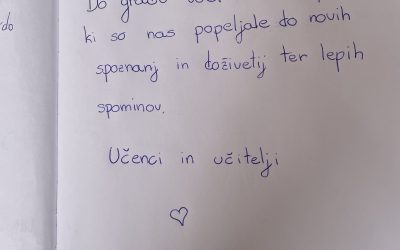 ki so nas popeljale do novih
spoznanj in doživetij ter lepih
spominov.
Učenci in učitelji